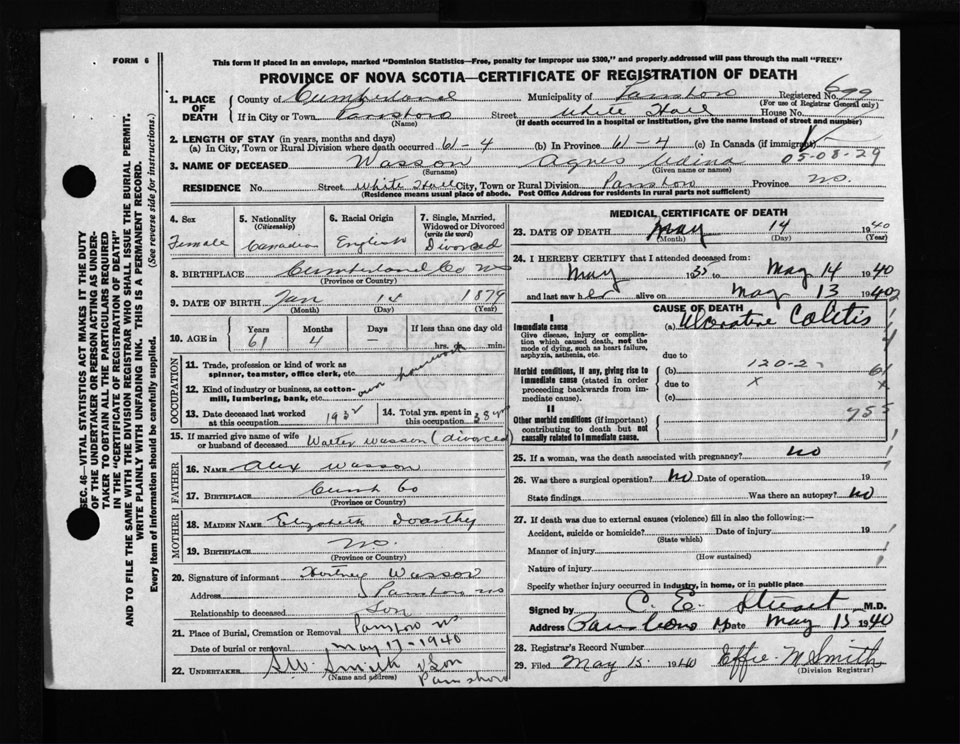 FORM 6
This form if placed in an envelope, marked "Dominion Statistics—Free, penalty for improper use $300," and properly addressed will pass through the mail "FREE"
PROVINCE OF NOVA SCOTIA—CERTIFICATE OF REGISTRATION OF DEATH
1. PLACE OF DEATH County of Cumberland Municipality of Parrsboro Registered No. 699
(For use of Registrar General only)
If in City or Town Parrsboro Street White Hall House No.
(Name) (If death occurred in a hospital or institution, give the name instead of street and number)
2. LENGTH OF STAY (in years, months and days)
(a) In City, Town or Rural Division where death occurred 61-4 (b) In Province 61-4 (c) In Canada (if immigrant)
05-08-29
3. NAME OF DECEASED Wasson Agnes
(Surname) (Given name or names)
RESIDENCE No. Street White Hall City, Town or Rural Division Parrsboro Province N.S.
(Residence means usual place of abode. Post Office Address for residents in rural parts not sufficient)
4. Sex Female
5. Nationality (Citizenship) Canadian
6. Racial Origin English
7. Single, Married, Widowed or Divorced (write the word) Divorced
8. BIRTHPLACE Cumberland Co NS
(Province or Country)
9. DATE OF BIRTH Jan 14 1879
(Month) (Day) (Year)
10. AGE in Years Months Days If less than one day old
61 4 — hrs. or min.
OCCUPATION
11. Trade, profession or kind of work as spinner, teamster, office clerk, etc.
12. Kind of industry or business, as cotton-mill, lumbering, bank, etc. own housework
13. Date deceased last worked at this occupation 1932
14. Total yrs. spent in this occupation 38 yrs
15. If married give name of wife or husband of deceased Walter Wasson (divorced)
FATHER
16. NAME Alex Wasson
17. BIRTHPLACE Cumb Co
(Province or Country)
MOTHER
18. MAIDEN NAME Elizabeth
19. BIRTHPLACE N.S.
(Province or Country)
20. Signature of informant Wasson
Address Parrsboro NS
Relationship to deceased Son
21. Place of Burial, Cremation or Removal Parrsboro N.S.
Date of burial or removal May 17-1940
22. UNDERTAKER S.W. Smith & Son
(Name and address) Parrsboro
MEDICAL CERTIFICATE OF DEATH
23. DATE OF DEATH May 14 1940
(Month) (Day) (Year)
24. I HEREBY CERTIFY that I attended deceased from:
May 1935 to May 14 1940
and last saw her alive on May 13 1940
CAUSE OF DEATH
I
Immediate cause (a) Ulcerative Colitis
Give disease, injury or complication which caused death, not the mode of dying, such as heart failure, asphyxia, asthenia, etc.
due to
Morbid conditions, if any, giving rise to immediate cause (stated in order proceeding backwards from immediate cause). (b) 120-2 61
due to x x
(c)
II
Other morbid conditions (if important) contributing to death but not causally related to immediate cause. 755
25. If a woman, was the death associated with pregnancy? no
26. Was there a surgical operation? No Date of operation 19
State findings Was there an autopsy? No
27. If death was due to external causes (violence) fill in also the following:—
Accident, suicide or homicide? Date of injury 19
(State which)
Manner of injury
(How sustained)
Nature of injury
Specify whether injury occurred in industry, in home, or in public place
Signed by C. E. Stuart M.D.
Address Parrsboro Date May 15 1940
28. Registrar's Record Number
29. Filed May 15 1940 Effie M Smith
(Division Registrar)
SEC. 46—VITAL STATISTICS ACT MAKES IT THE DUTY
OF THE UNDERTAKER OR PERSON ACTING AS UNDER-
TAKER TO OBTAIN ALL THE PARTICULARS REQUIRED
IN THE "CERTIFICATE OF REGISTRATION OF DEATH"
AND TO FILE THE SAME WITH THE DIVISION REGISTRAR WHO SHALL ISSUE THE BURIAL PERMIT.
WRITE PLAINLY WITH UNFADING INK. THIS IS A PERMANENT RECORD.
Every item of information should be carefully supplied. (See reverse side for instructions.)